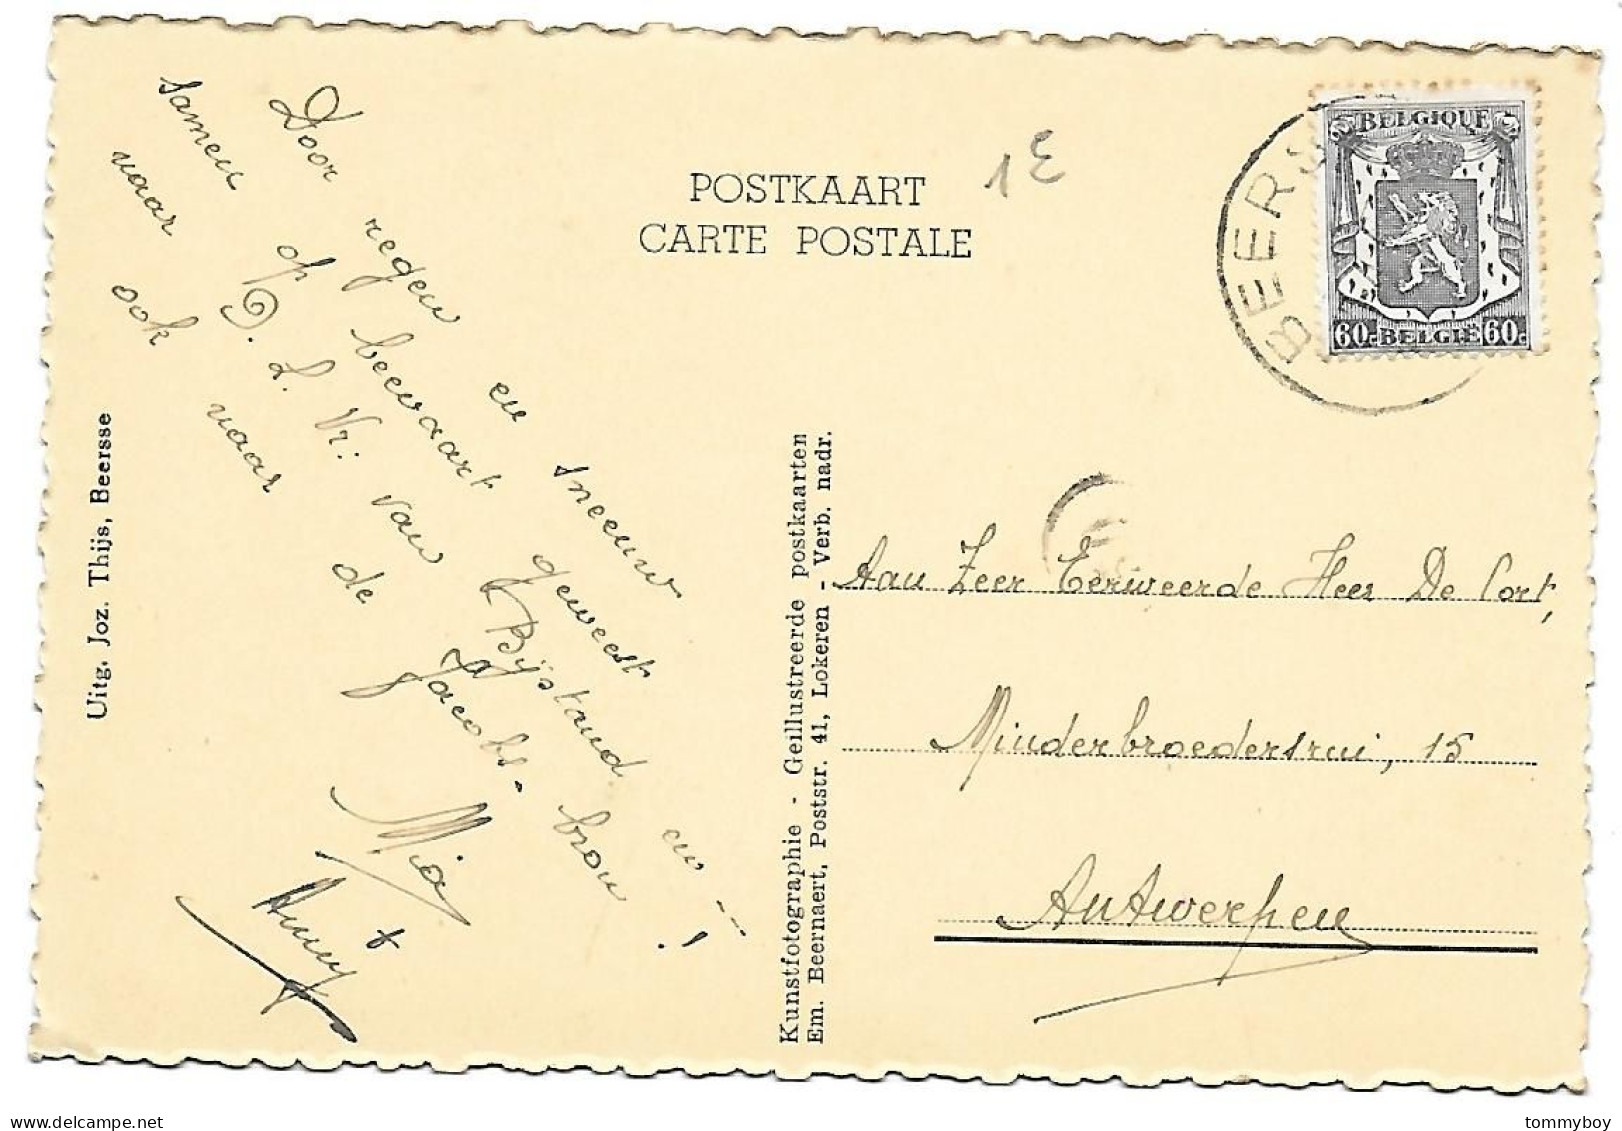 POSTKAART
CARTE POSTALE
1 E
BEERS
BELGIQUE
60c BELGIË 60c
Door regen en sneeuw
samen op beevaart geweest
naar O. L. Vr. van Bijstand en --
ook naar de Jacobs-bron!
Mia
Anny
Uitg. Joz. Thijs, Beersse
Kunstfotographie - Geillustreerde postkaarten
Em. Beernaert, Poststr. 41, Lokeren - Verb. nadr.
Aan Zeer Eerweerde Heer De Cort,
Minderbroedersrui, 15
Antwerpen
tommyboy